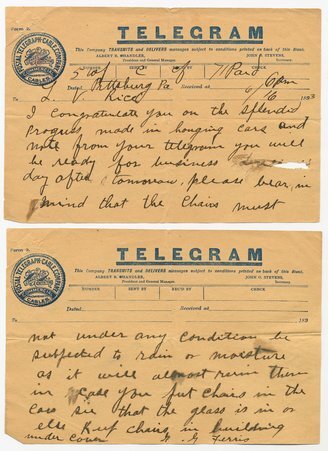 Form 2.
TELEGRAM
POSTAL TELEGRAPH-CABLE COMPANY
CABLES
This Company TRANSMITS and DELIVERS messages subject to conditions printed on back of this Blank.
ALBERT B. CHANDLER,
President and General Manager.
JOHN O. STEVENS,
Secretary.
NUMBER SENT BY REC'D BY CHECK
71 Paid
Dated Pittsburg Pa Received at 6 pm
To L. V. Rice 6/10 1893
I congratulate you on the splendid
Progress made in hanging cars and
note from your telegram you will
be ready for business
day after tomorrow, please bear in
mind that the chairs must
Form 2.
TELEGRAM
POSTAL TELEGRAPH-CABLE COMPANY
CABLES
This Company TRANSMITS and DELIVERS messages subject to conditions printed on back of this Blank.
ALBERT B. CHANDLER,
President and General Manager.
JOHN O. STEVENS,
Secretary.
NUMBER SENT BY REC'D BY CHECK
Dated Received at
To 189
not under any condition be
subjected to rain or moisture
as it will almost ruin them
in case you put chairs in the
cars see that the glass is in or
else Keep chairs in building
under cover G. G Ferris